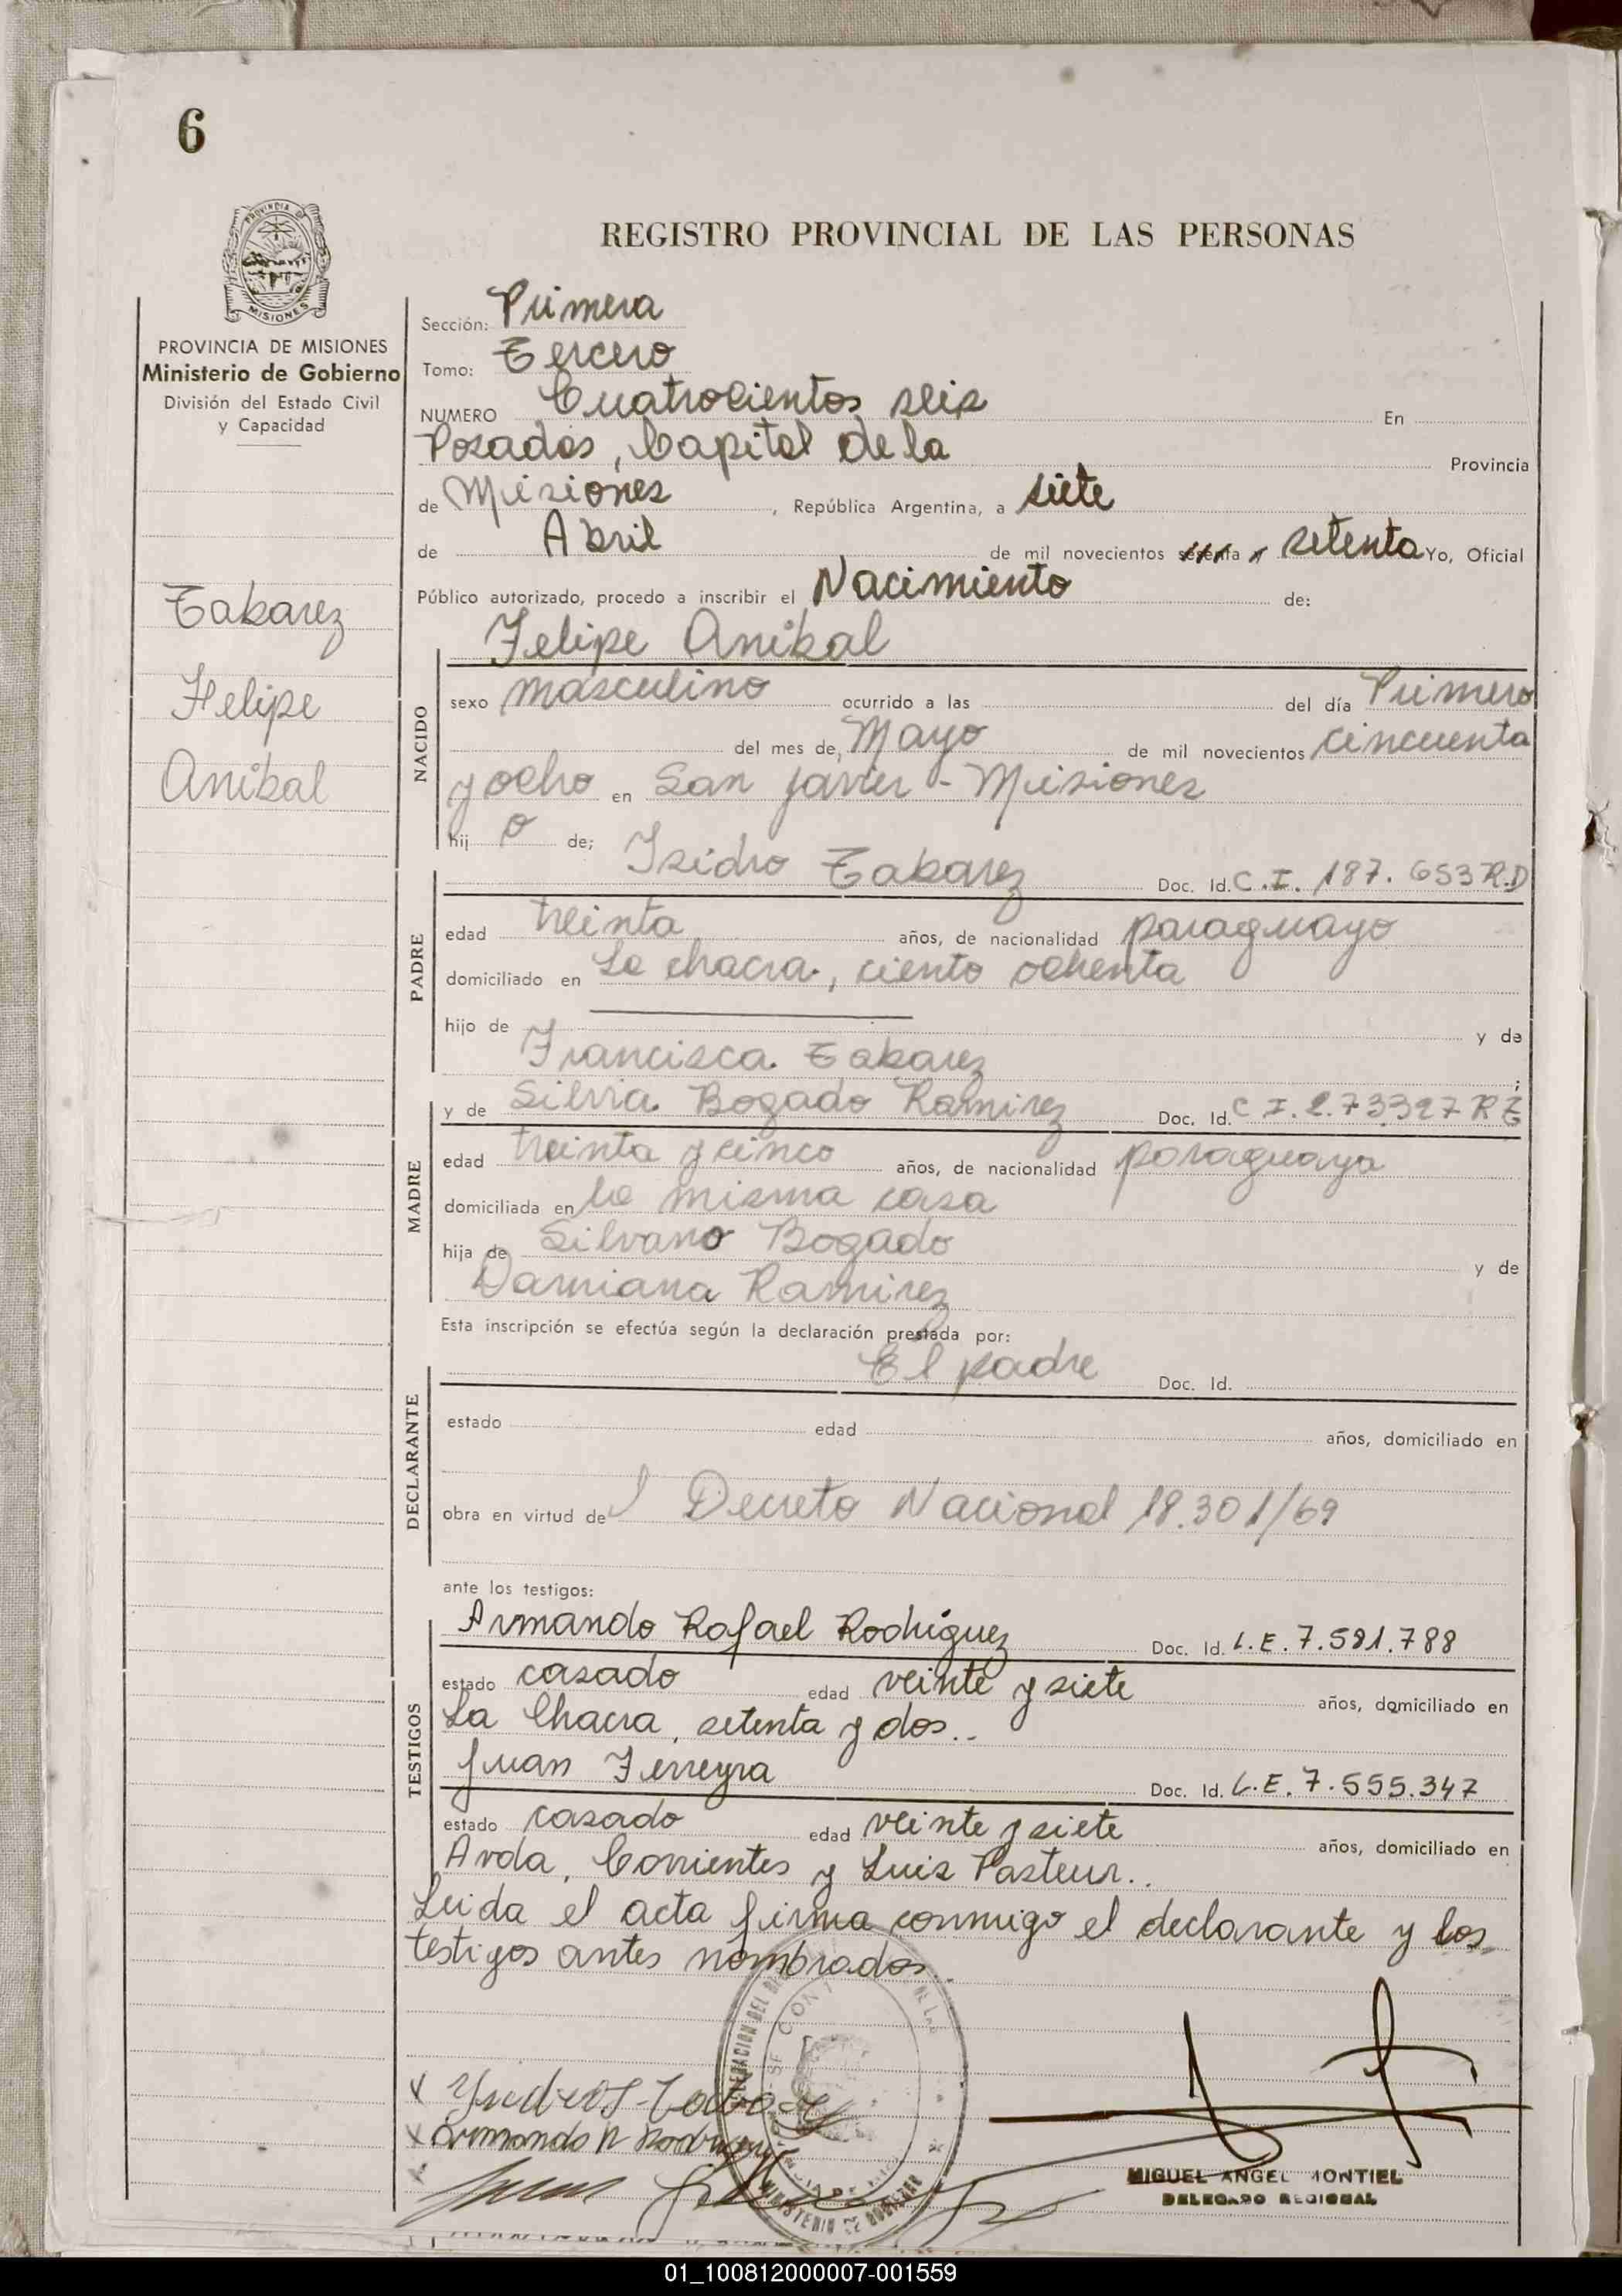 6
REGISTRO PROVINCIAL DE LAS PERSONAS
PROVINCIA DE MISIONES
Ministerio de Gobierno
División del Estado Civil
y Capacidad
Tabarez
Felipe
Anibal
Sección: Primera
Tomo: Tercero
NUMERO Cuatrocientos seis En
Posadas, Capital de la Provincia
de Misiones, República Argentina, a siete
de Abril de mil novecientos sesenta y setenta Yo, Oficial
Público autorizado, procedo a inscribir el Nacimiento de:
Felipe Anibal
NACIDO
sexo masculino ocurrido a las del día Primero
del mes de Mayo de mil novecientos cincuenta
y ocho en San Javier - Misiones
hij o de; Isidro Tabarez Doc. Id. C.I. 187.653 R.D
PADRE
edad treinta años, de nacionalidad paraguayo
domiciliado en La chacra, ciento ochenta
hijo de y de
Francisca Tabarez ;
y de Silvia Bogado Ramirez Doc. Id. C I. 2.73327 R
MADRE
edad treinta y cinco años, de nacionalidad paraguaya
domiciliada en la misma casa
hija de Silvano Bogado y de
Damiana Ramirez
Esta inscripción se efectúa según la declaración prestada por:
El padre Doc. Id.
DECLARANTE
estado edad años, domiciliado en
obra en virtud del Decreto Nacional 18.301/69
ante los testigos:
TESTIGOS
Armando Rafael Rodriguez Doc. Id. L.E. 7.581.788
estado casado edad veinte y siete años, domiciliado en
La Chacra, setenta y dos..
Juan Ferreyra Doc. Id. L.E. 7.555.347
estado casado edad veinte y siete años, domiciliado en
Avda. Corrientes y Luis Pasteur..
Leida el acta firma conmigo el declarante y los
testigos antes nombrados..
MINISTERIO DE GOBIERNO
x Armando R Rodriguez
MIGUEL ANGEL MONTIEL
DELEGADO REGIONAL
01_100812000007-001559